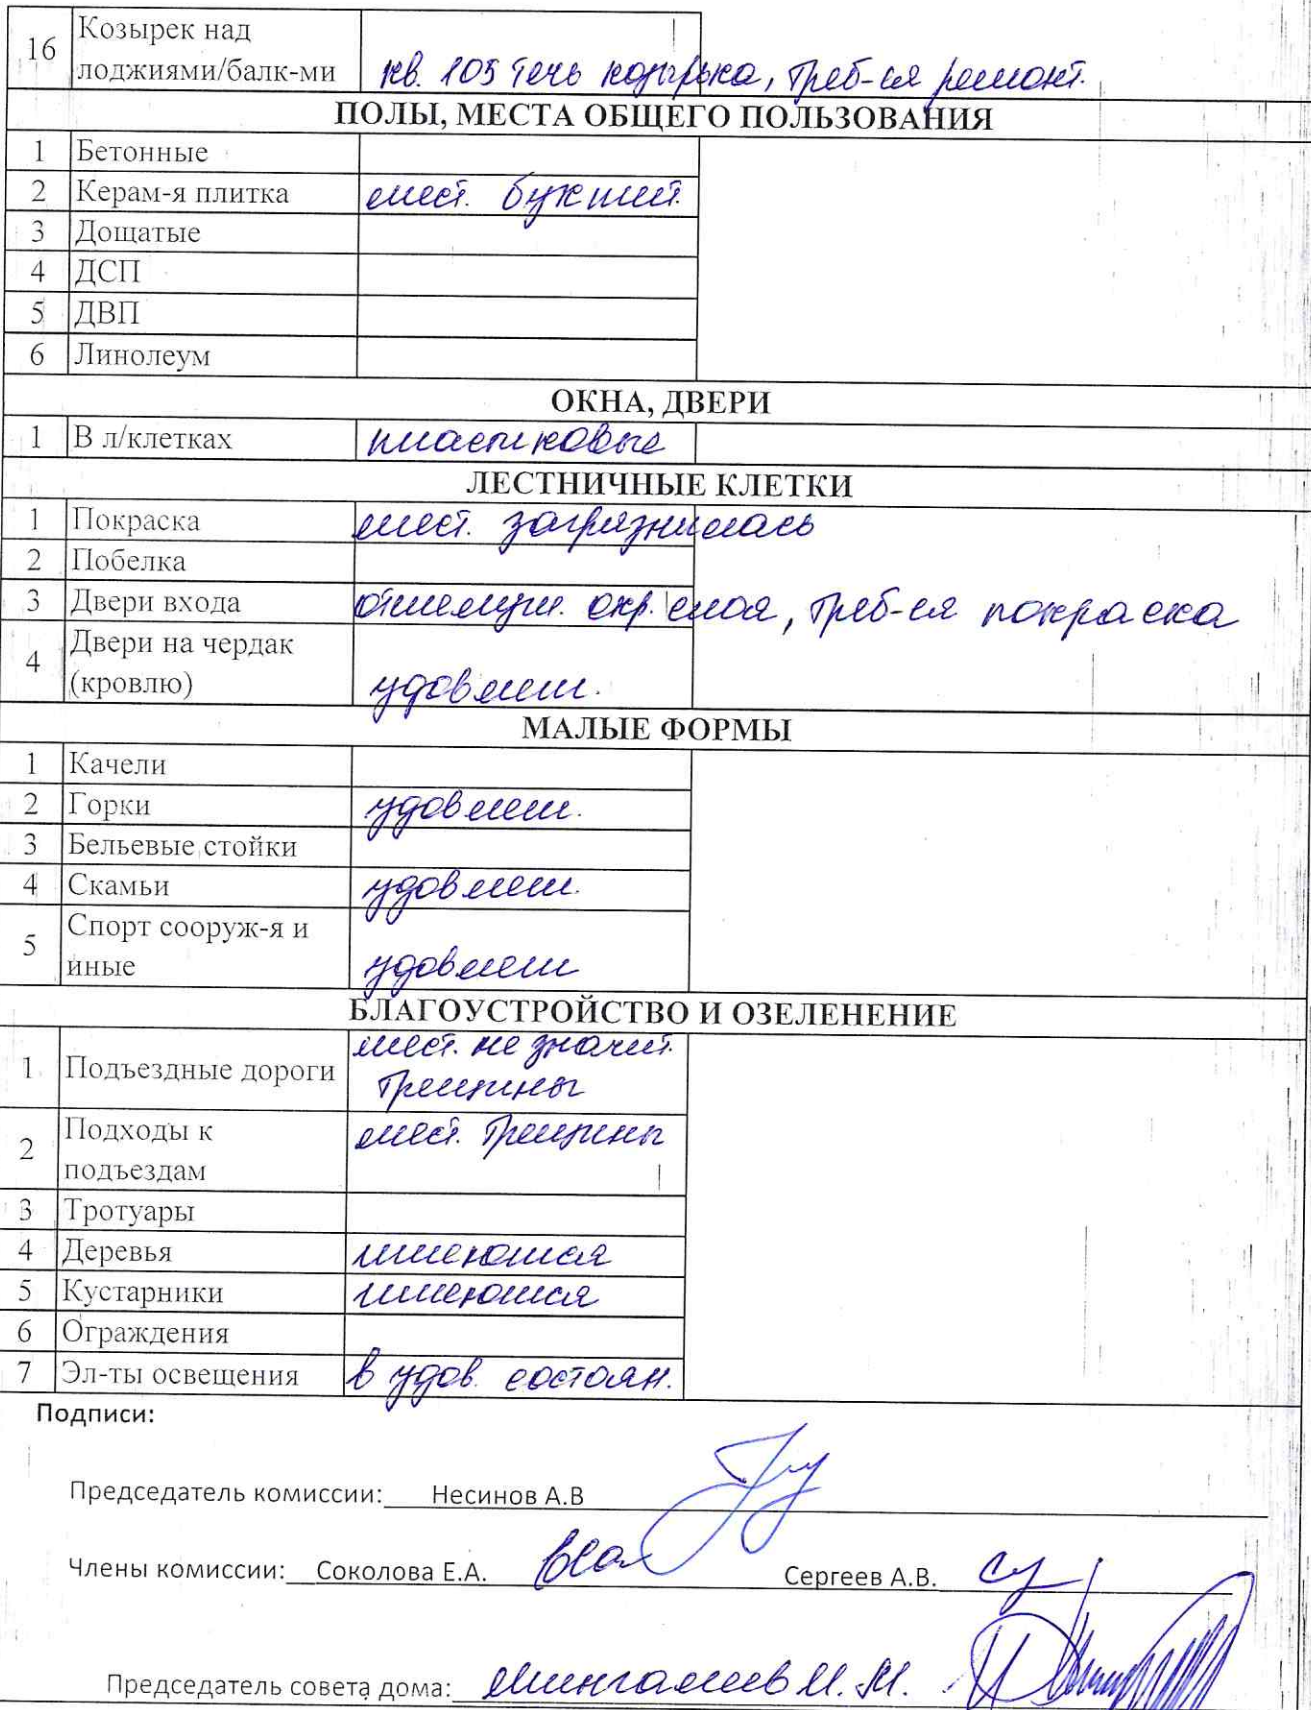 16 Козырек над
лоджиями/балк-ми кв. 105 течь козырька, треб-ся ремонт.
ПОЛЫ, МЕСТА ОБЩЕГО ПОЛЬЗОВАНИЯ
1 Бетонные
2 Керам-я плитка мест. бухтит.
3 Дощатые
4 ДСП
5 ДВП
6 Линолеум
ОКНА, ДВЕРИ
1 В л/клетках пластиковые
ЛЕСТНИЧНЫЕ КЛЕТКИ
1 Покраска мест. загрязнилась
2 Побелка
3 Двери входа отшелуш. окр. слоя, треб-ся покраска
4 Двери на чердак
(кровлю) удовлет.
МАЛЫЕ ФОРМЫ
1 Качели
2 Горки удовлет.
3 Бельевые стойки
4 Скамьи удовлет.
5 Спорт сооруж-я и
иные удовлет
БЛАГОУСТРОЙСТВО И ОЗЕЛЕНЕНИЕ
1 Подъездные дороги мест. не значит.
трещины
2 Подходы к мест. трещины
подъездам
3 Тротуары
4 Деревья имеются
5 Кустарники имеются
6 Ограждения
7 Эл-ты освещения в удов. состоян.
Подписи:
Председатель комиссии: Несинов А.В
Члены комиссии: Соколова Е.А. Сергеев А.В.
Председатель совета дома: И. М.